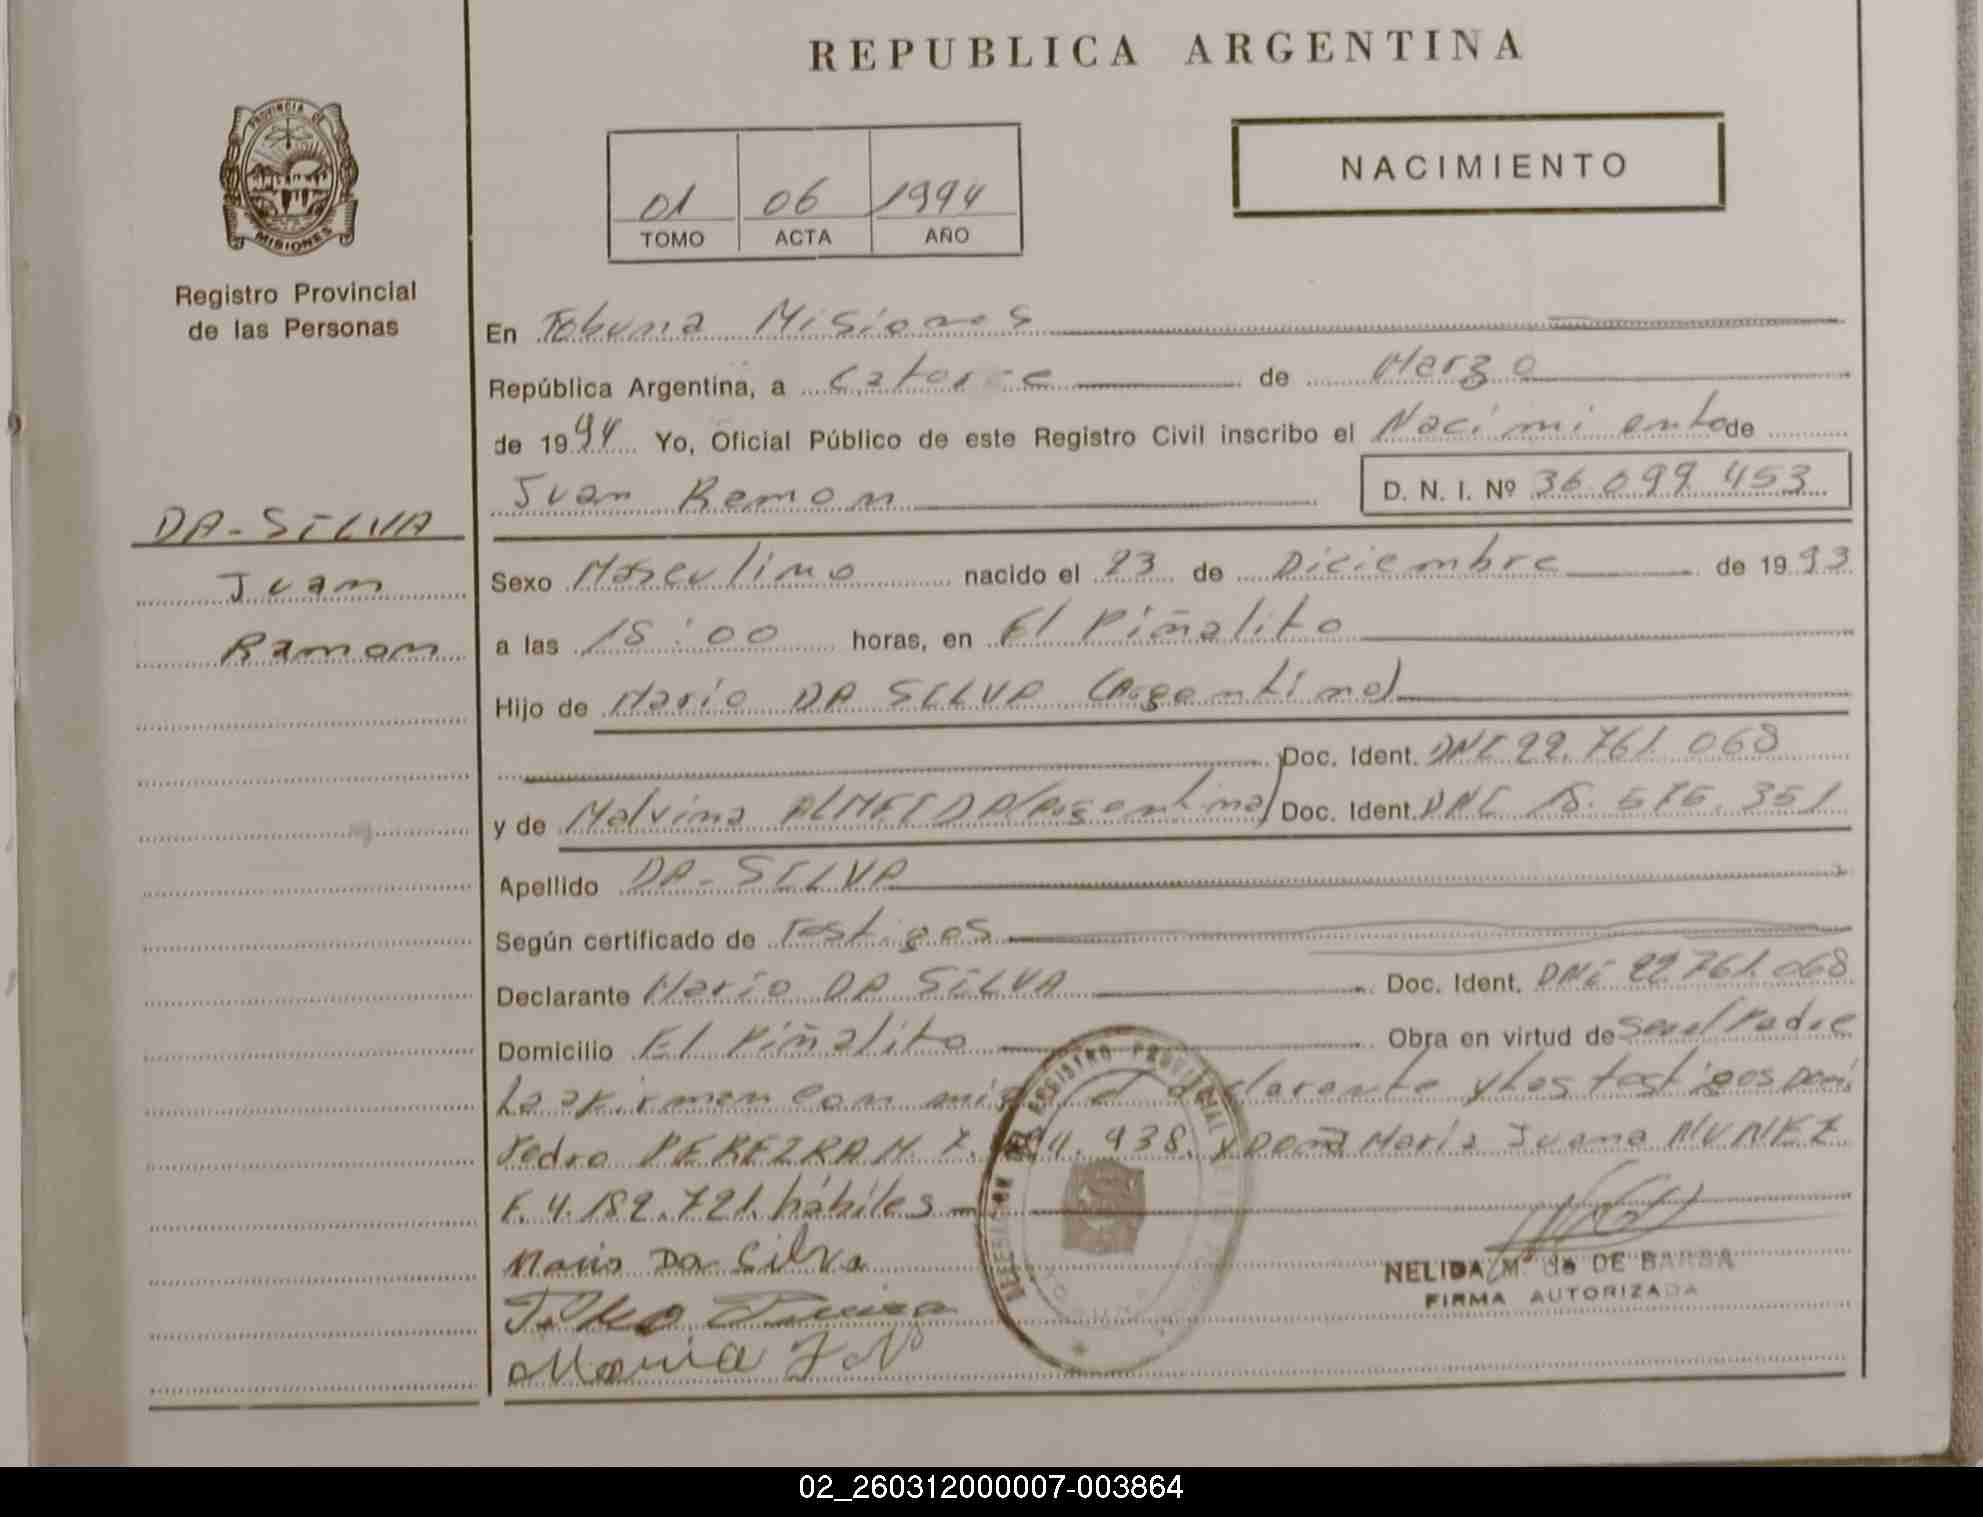 REPUBLICA ARGENTINA
PROVINCIA DE
MISIONES
Registro Provincial
de las Personas
01 06 1994
TOMO ACTA AÑO
NACIMIENTO
DA-SILVA
Juan
Ramon
En Tobuna Misiones
República Argentina, a Catorce de Marzo
de 1994 Yo, Oficial Público de este Registro Civil inscribo el Nacimiento de
Juan Ramon D. N. I. Nº 36.099.453
Sexo Masculino nacido el 23 de Diciembre de 1993
a las 15:00 horas, en El Piñalito
Hijo de Mario DA SILVA (Argentino)
Doc. Ident. DNI 22.761.068
y de Malvina ALMEIDA (Argentina) Doc. Ident. DNI 18.576.351
Apellido DA-SILVA
Según certificado de Testigos
Declarante Mario DA SILVA Doc. Ident. DNI 22.761.068
Domicilio El Piñalito Obra en virtud de Ser el Padre
La firman con migo el declarante y los testigos
Pedro M. 7. 938. y Doña Maria Juana NUNEZ
F. 4.182.721. hábiles
Mario Da Silva
Maria J N
REGISTRO PROVINCIAL
NELIDA Mª de DE BARBA
FIRMA AUTORIZADA
02_260312000007-003864